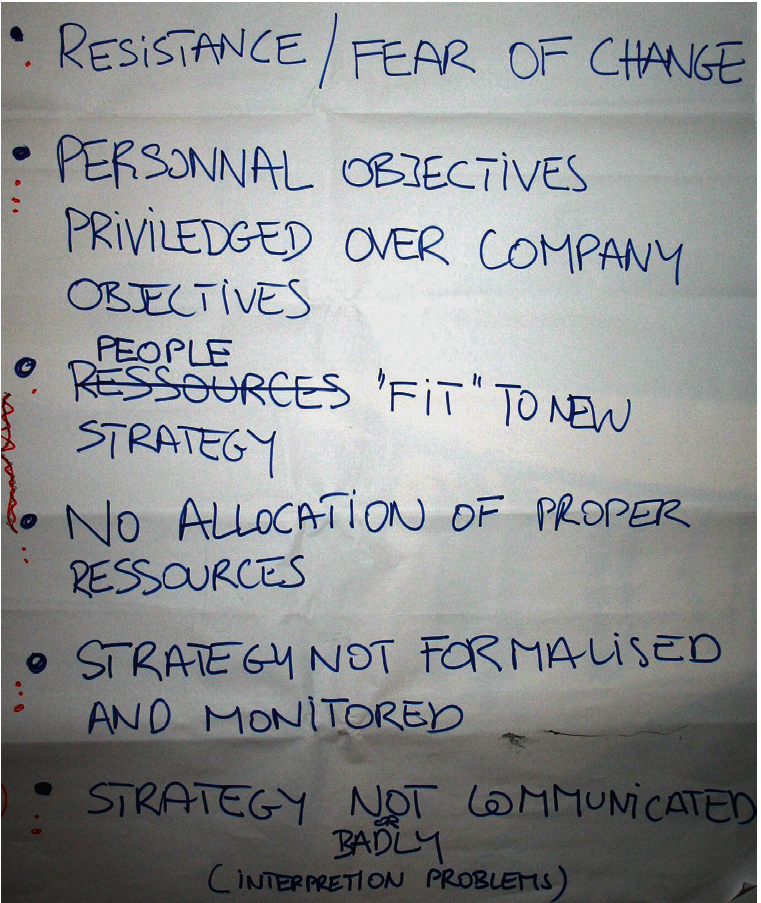 • RESISTANCE / FEAR OF CHANGE
• PERSONNAL OBJECTIVES
PRIVILEDGED OVER COMPANY
OBJECTIVES
PEOPLE
• ~~RESSOURCES~~ "FIT" TO NEW
STRATEGY
• NO ALLOCATION OF PROPER
RESSOURCES
• STRATEGY NOT FORMALISED
AND MONITORED
• STRATEGY NOT COMMUNICATED
OR
BADLY
(INTERPRETION PROBLEMS)